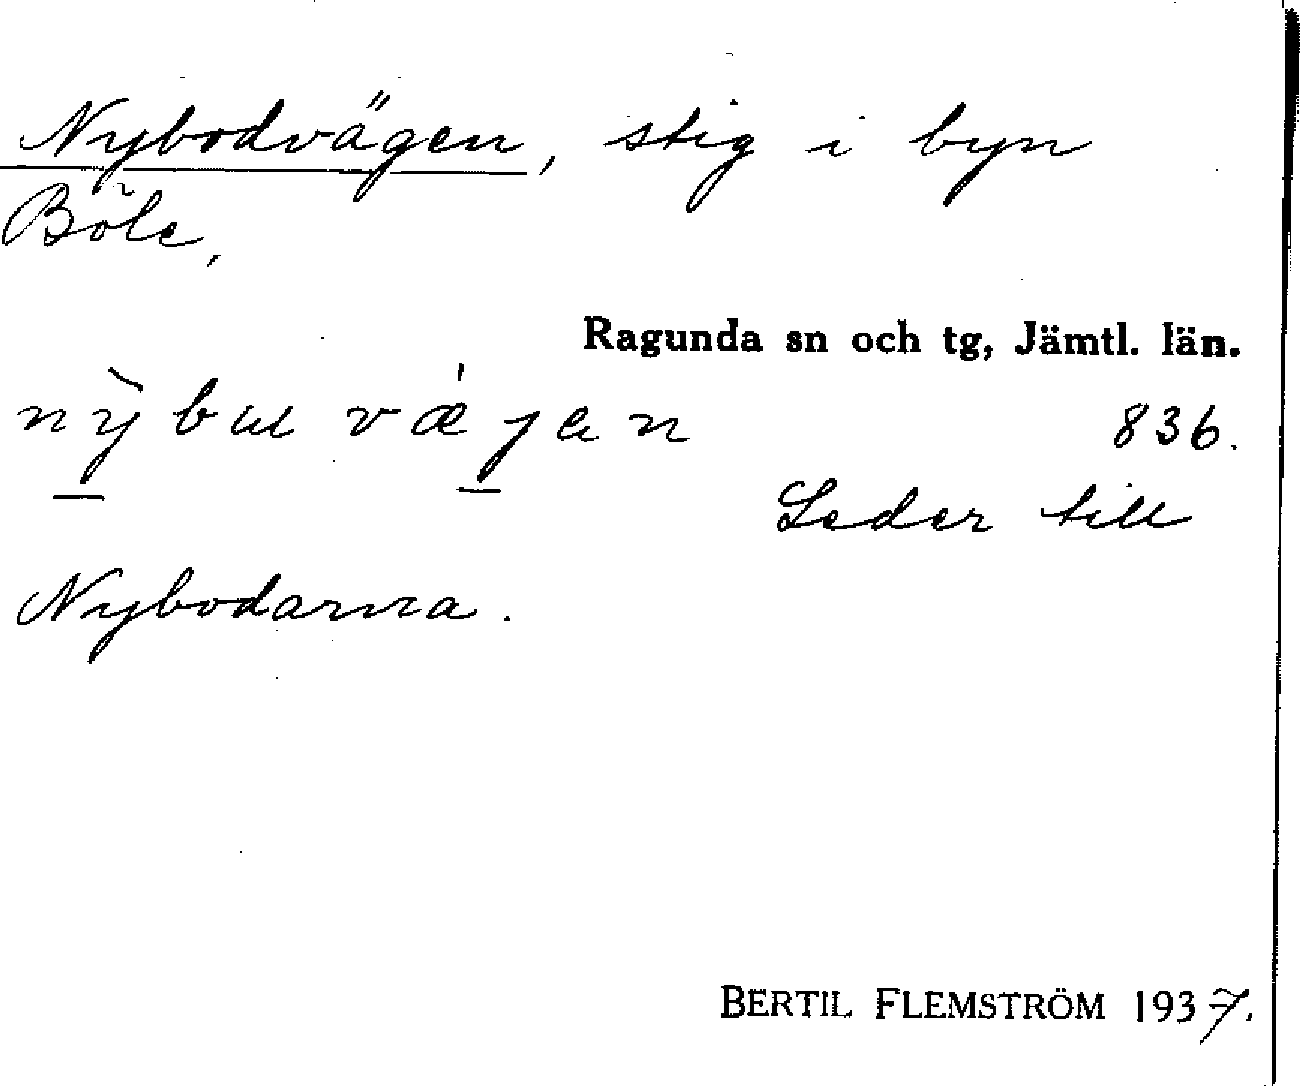 Nybodvägen, stig i byn
Böle,
Ragunda sn och tg, Jämtl. län.
nỳbuvǽjen
836.
Leder till
Nybodarna.
BERTIL FLEMSTRÖM 1937.